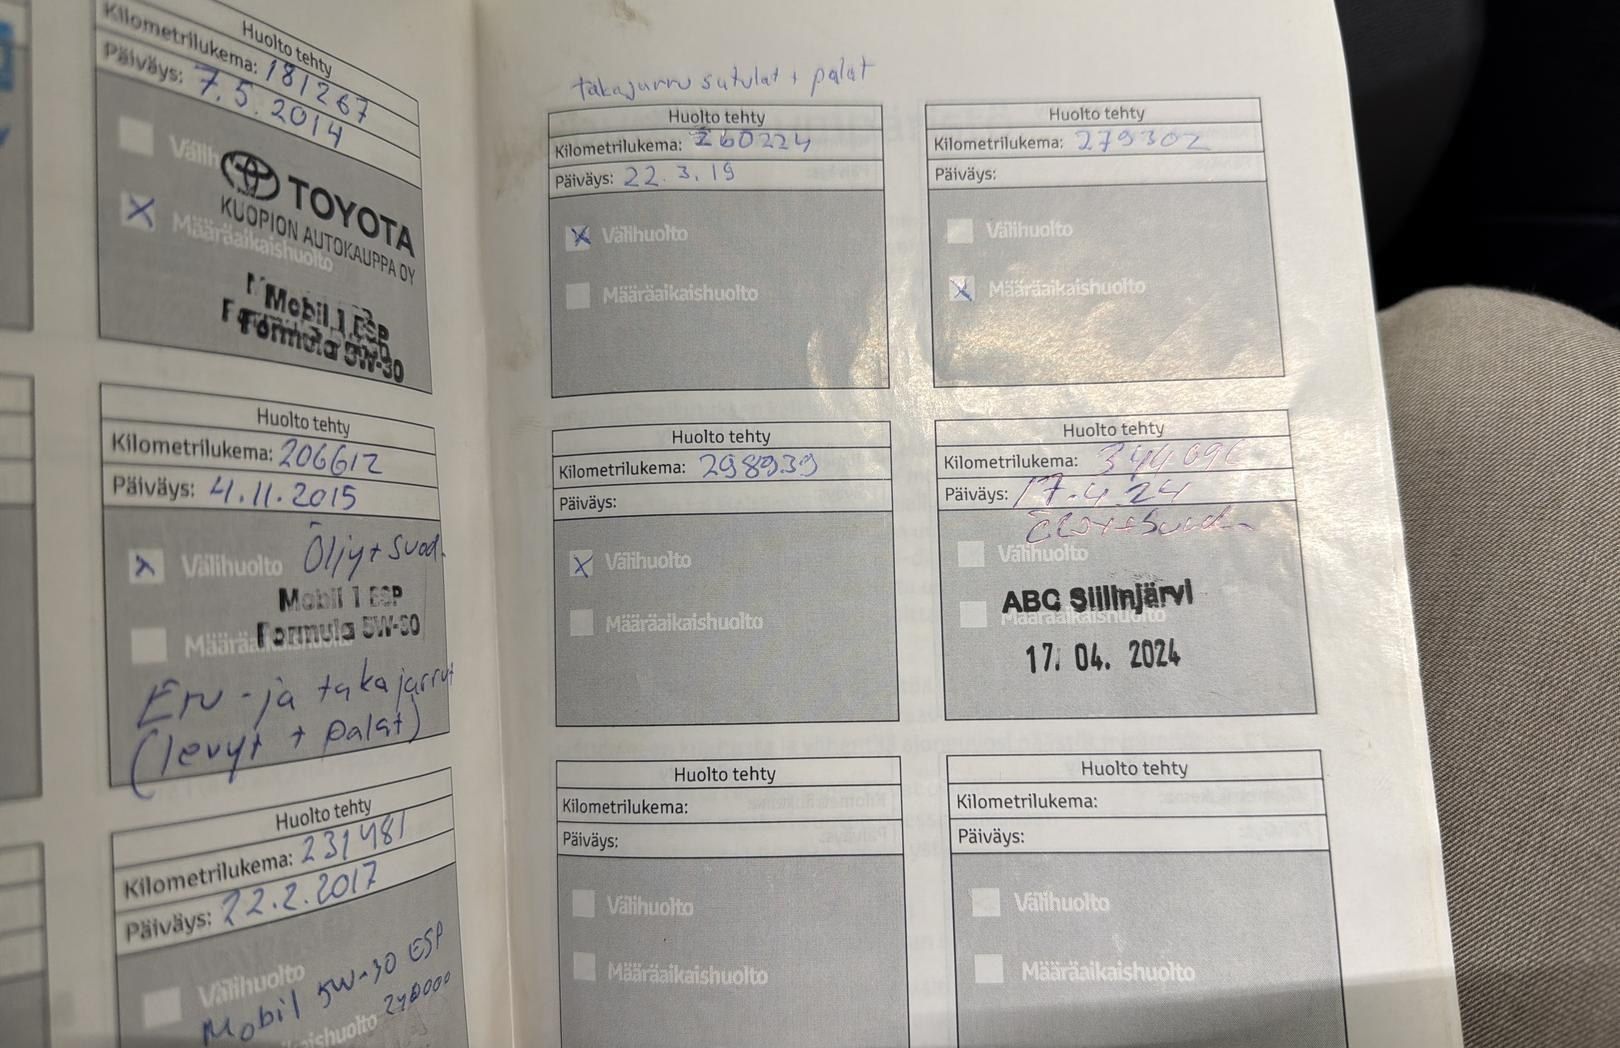 Huolto tehty
Kilometrilukema: 181267
Päiväys: 7.5.2014
Välih
TOYOTA
KUOPION AUTOKAUPPA OY
Määräaikaishuolto
Mobil 1 ESP
Formula 5W-30
Huolto tehty
Kilometrilukema: 206612
Päiväys: 4.11.2015
Öljy + suod.
Välihuolto
Mobil 1 ESP
Formula 5W-30
Määräaikaishuolto
Etu - ja takajarrut
(levyt + palat)
Huolto tehty
Kilometrilukema: 231481
Päiväys: 22.2.2017
Välihuolto
Mobil 5W-30 ESP
aishuolto
takajarru satulat + palat
Huolto tehty
Kilometrilukema: 260224
Päiväys: 22.3.19
Välihuolto
Määräaikaishuolto
Huolto tehty
Kilometrilukema: 279302
Päiväys:
Välihuolto
Määräaikaishuolto
Huolto tehty
Kilometrilukema: 298939
Päiväys:
Välihuolto
Määräaikaishuolto
Huolto tehty
Kilometrilukema:
Päiväys: 17.4.24
Välihuolto
ABC Siilinjärvi
Määräaikaishuolto
17. 04. 2024
Huolto tehty
Kilometrilukema:
Päiväys:
Välihuolto
Määräaikaishuolto
Huolto tehty
Kilometrilukema:
Päiväys:
Välihuolto
Määräaikaishuolto